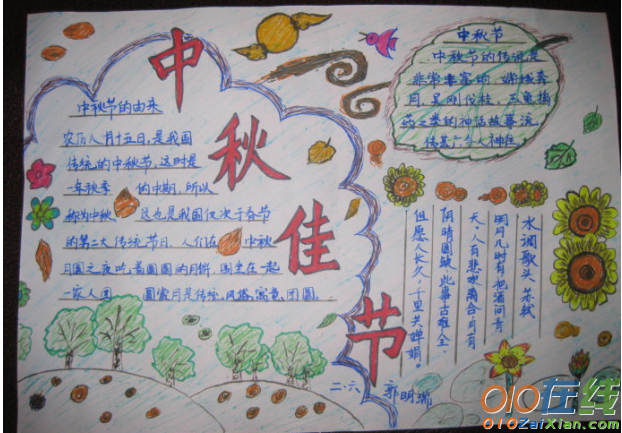 中秋佳节
中秋节的由来
农历八月十五日,是我国
传统的中秋节,这时是
一年秋季 的中期,所以
称为中秋 这也是我国仅次于春节
的第二大传统节日,人们在 中秋
月圆之夜吃着圆圆的月饼,围坐在一起
一家人团 圆赏月是传统,风格,寓意,团圆。
中秋节
中秋节的传说是
非常丰富的,嫦娥奔
月,吴刚伐桂,玉兔捣
药之类的神话故事流
传甚广令人神往
水调歌头 苏轼
明月几时有把酒问青
天,人有悲欢离合月有
阴晴圆缺,此事古难全,
但愿人长久,千里共婵娟。
二.六 郭明瑞
010在线
010ZaiXian.Com